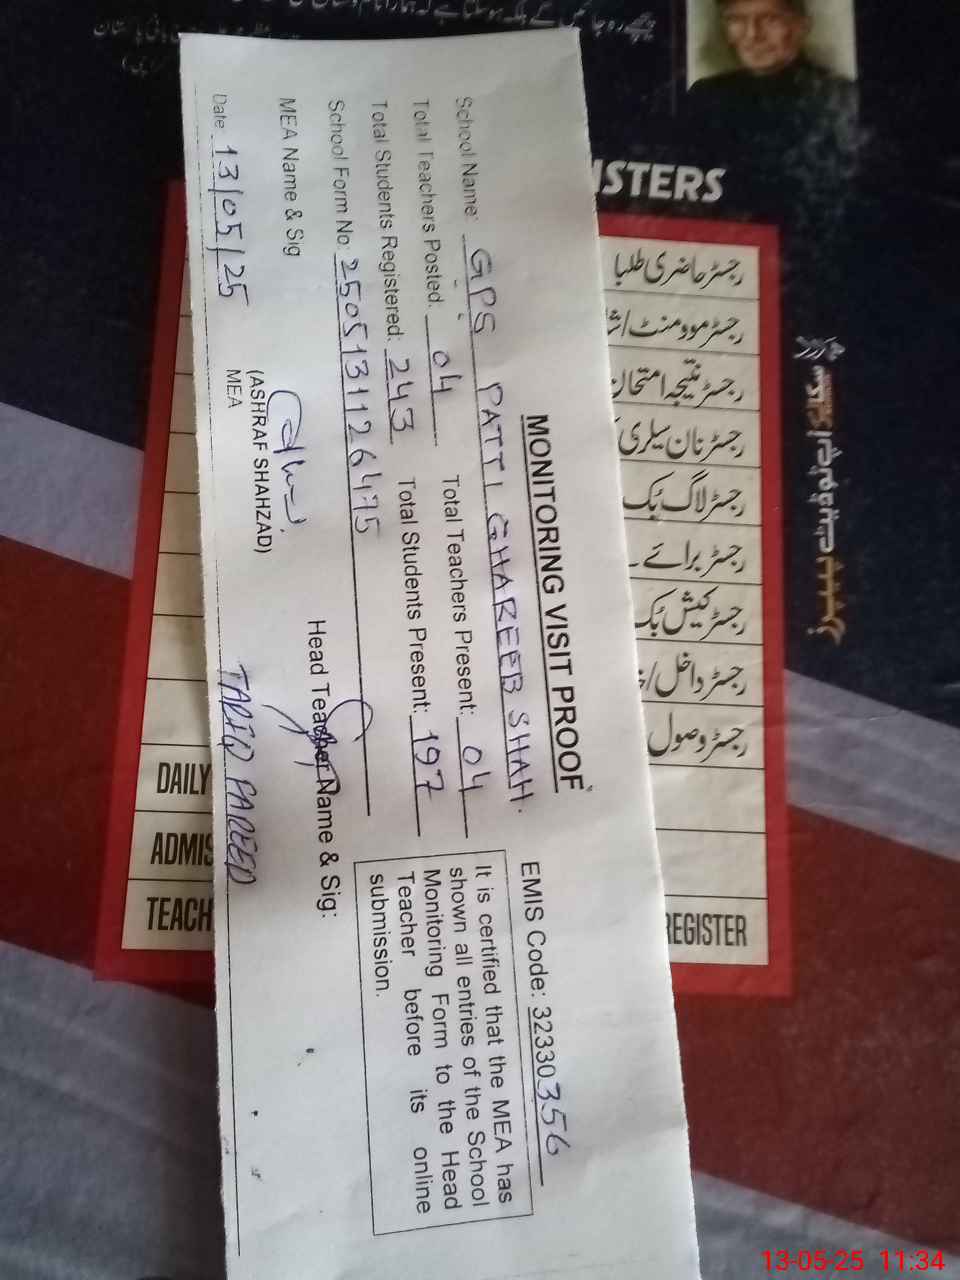 MONITORING VISIT PROOF
EMIS Code: 32330356
School Name: GPS PATTI GHAREEB SHAH.
Total Teachers Posted: 04 Total Teachers Present: 04
Total Students Registered: 243 Total Students Present: 197
School Form No: 2505131126475
It is certified that the MEA has
shown all entries of the School
Monitoring Form to the Head
Teacher before its online
submission.
MEA Name & Sig
Head Teacher Name & Sig:
(ASHRAF SHAHZAD)
MEA
TARIQ FAREED
Date 13/05/25
ISTERS
رجسٹر حاضری طلبا
رجسٹر موومنٹ/
رجسٹر نتیجہ امتحان
رجسٹر نان سیلری
رجسٹر لاگ بک
رجسٹر برائے
رجسٹر کیش بک
رجسٹر داخل/
رجسٹر وصول
DAILY
ADMIS
TEACH
REGISTER
13-05-25 11:34